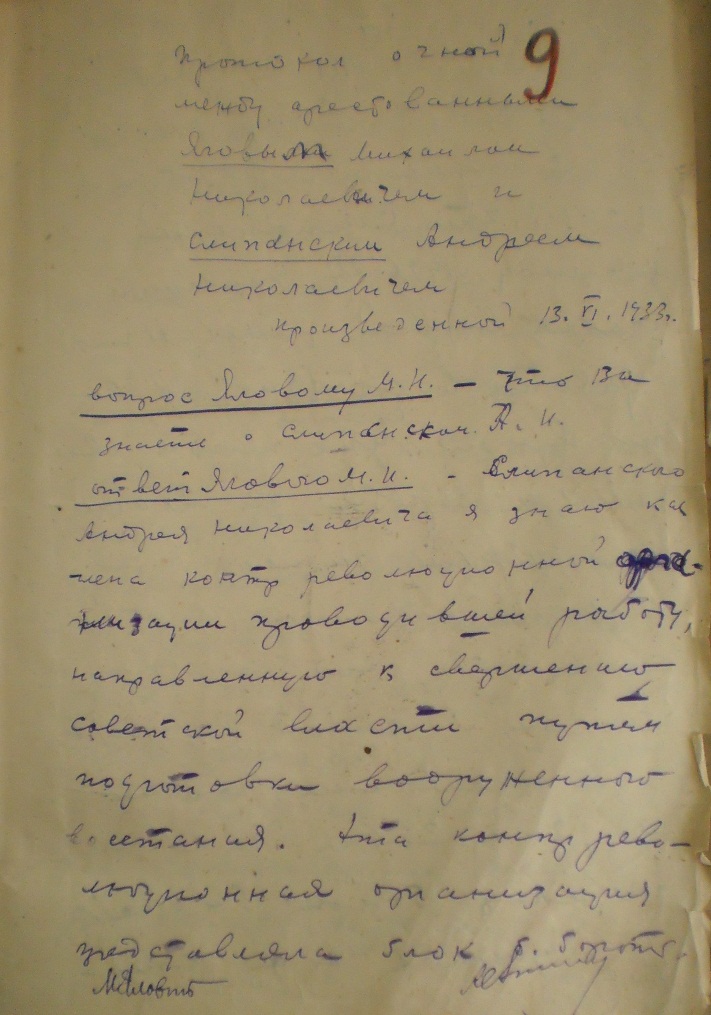 9
Протокол очной
между арестованными
Яговым Михаилом
Николаевичем и
Слипанским Андреем
Николаевичем
произведенной 13.VI.1933г.
вопрос Яловому М.Н. – Что Вы
знаете о Слипанском А. Н.
ответ Ялового М.Н. – Слипанского
Андрея Николаевича я знаю как
члена контр революционной орга-
низации проводившей работу,
направленную к свержению
советской власти путем
подготовки вооруженного
восстания. Эта контр рево-
люционная организация
представляла блок б. боротб.
МЯловий